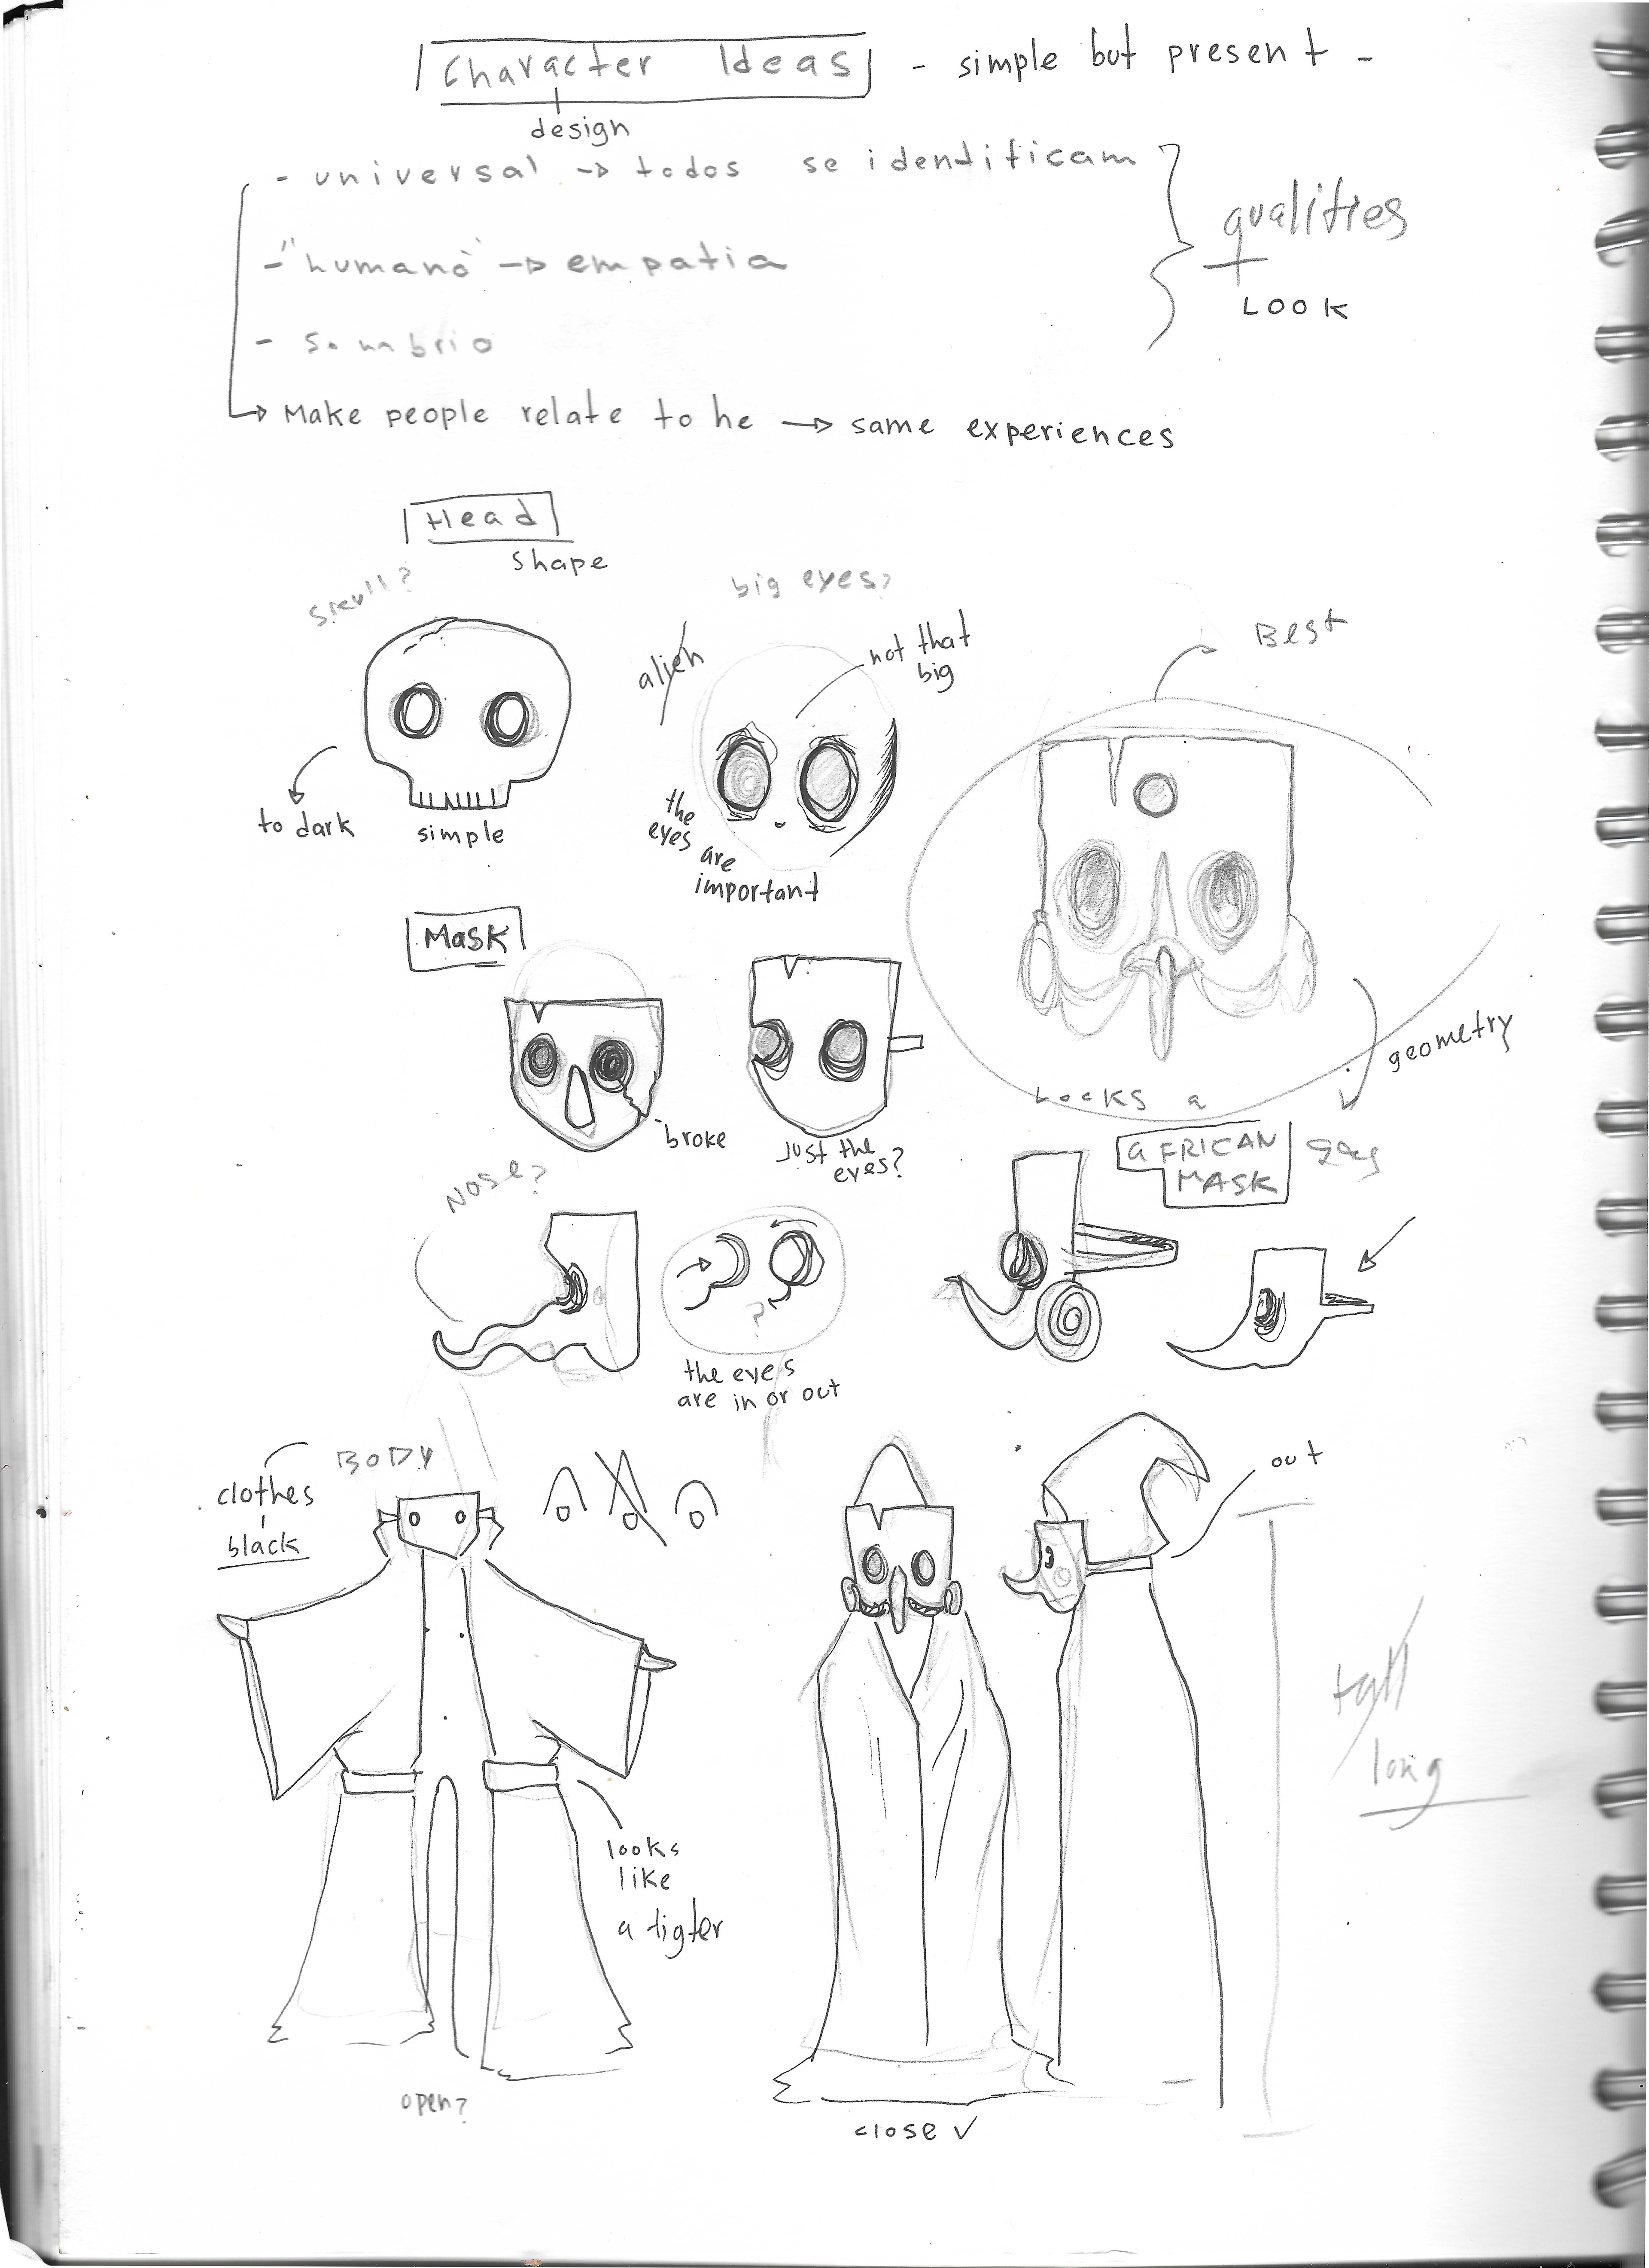 Character Ideas - simple but present -
design
- universal → todos se identificam
- "humano" → empatia
- sombrio
qualities
+
LOOK
Make people relate to he → same experiences
Head
shape
big eyes?
alien
not that
big
Best
to dark
simple
the
eyes
are
important
Mask
broke
Just the
eyes?
geometry
Looks a
aFRICAN
MASK
Nose?
the eyes
are in or out
BODY
clothes
black
?
out
tall
long
looks
like
a figter
open?
close ✓